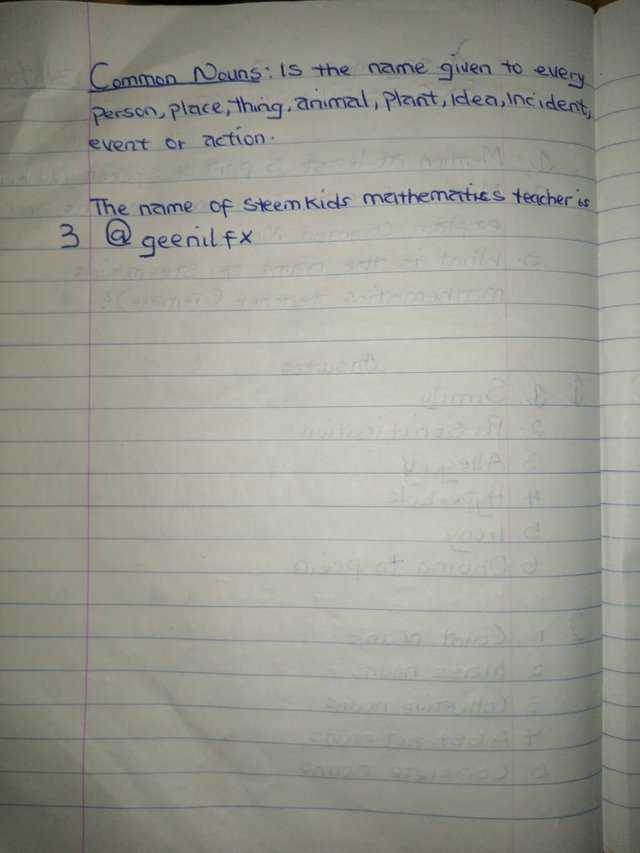 Common Nouns: Is the name given to every
person, place, thing, animal, plant, idea, incident,
event or action.
The name of Steemkids mathematics teacher is
3 @ geenilfx